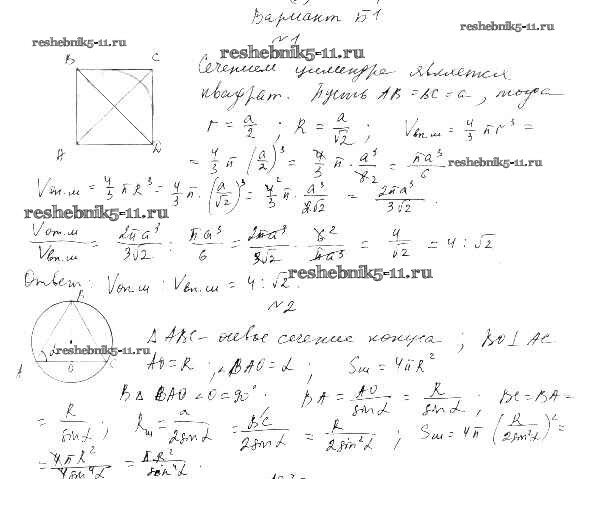 Вариант Б1
reshebnik5-11.ru
reshebnik5-11.ru
№1
reshebnik5-11.ru
B C
Сечением цилиндра является
квадрат. Пусть AB = BC = a, тогда
r = a/2 ; R = a/√2 ; Vвп.ш = 4/3 π r³ =
A D
= 4/3 π (a/2)³ = 4/3 π · a³/8₂ = πa³/6
reshebnik5-11.ru
Vоп.ш = 4/3 π R³ = 4/3 π · (a/√2)³ = 4²/3 π · a³/2√2 = 2πa³/3√2 .
reshebnik5-11.ru
Vоп.ш/Vвп.ш = 2πa³/3√2 : πa³/6 = 2πa³/3√2 · 6²/πa³ = 4/√2 = 4 : √2
Ответ: Vоп.ш : Vвп.ш = 4 : √2.
reshebnik5-11.ru
№2
B
reshebnik5-11.ru
A O C
ΔABC – осевое сечение конуса ; BO ⊥ AC
AO = R ; ∠BAO = α ; Sш = 4πR²
В Δ BAO ∠O = 90° . BA = AO/sinα = R/sinα ; BC = BA =
= R/sinα ; Rш = a/2sinα = BC/2sinα = R/2sin²α ; Sш = 4π (R/2sin²α)² =
= 4πR²/4sin⁴α = πR²/sin⁴α .